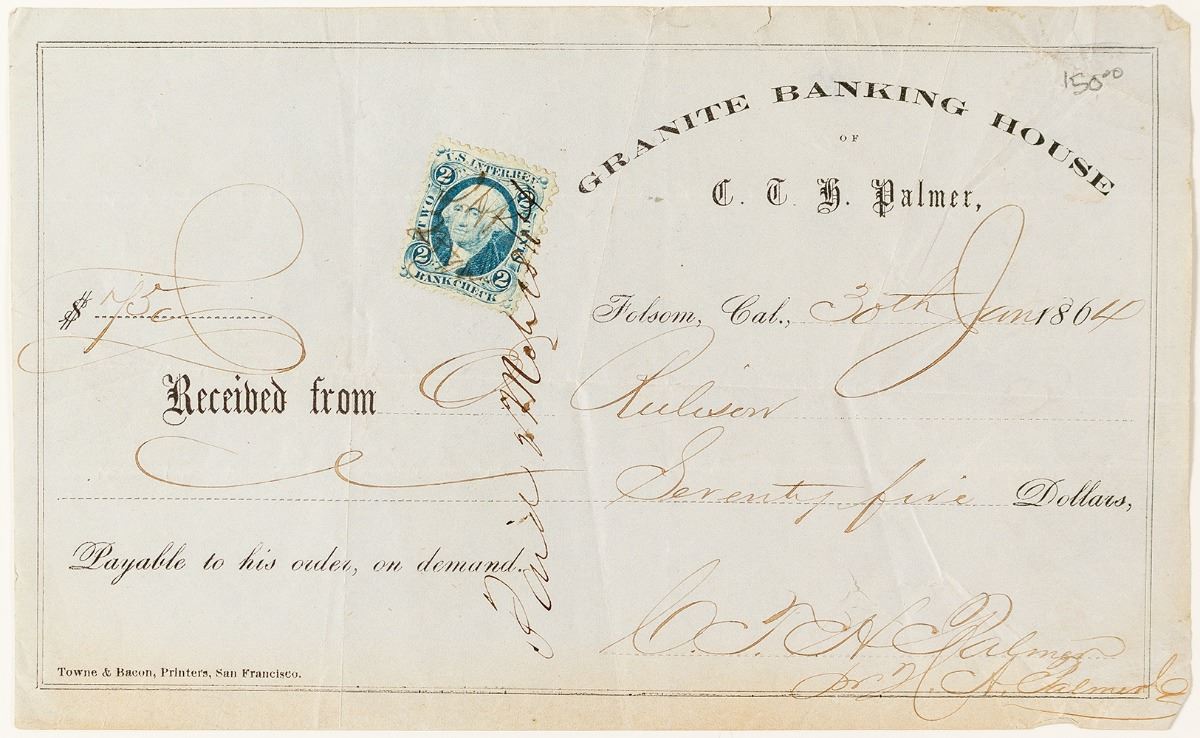 150.00
GRANITE BANKING HOUSE
OF
C. T. H. Palmer,
U.S. INTER. REV.
2 2
TWO
2 2
BANK CHECK
$ 75
Folsom, Cal., 30th Jan 1864
Received from O Rulison
Seventy five Dollars,
Payable to his order, on demand.
Paid
C. T. H. Palmer
pr H. A. Palmer
Towne & Bacon, Printers, San Francisco.